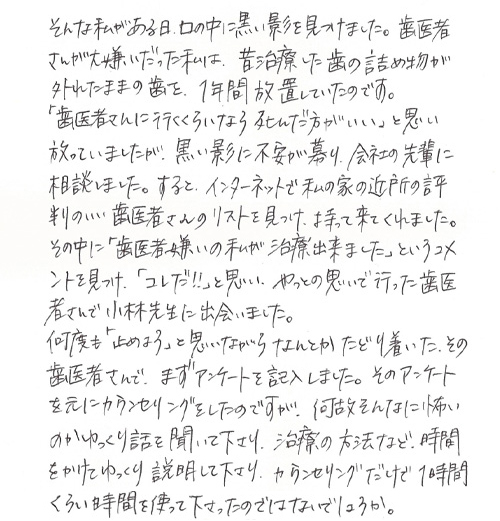 そんな私がある日、口の中に黒い影を見つけました。歯医者
さんが大嫌いだった私は、昔治療した歯の詰め物が
外れたままの歯を、1年間放置していたのです。
「歯医者さんに行くくらいなら死んだ方がいい」と思い
放っていましたが、黒い影に不安が募り、会社の先輩に
相談しました。すると、インターネットで私の家の近所の評
判のいい歯医者さんのリストを見つけ、持って来てくれました。
その中に「歯医者嫌いの私が治療出来ました」というコメ
ントを見つけ、「コレだ!!」と思い、やっとの思いで行った歯医
者さんで小林先生に出会いました。
何度も「止めよう」と思いながらなんとかたどり着いた、その
歯医者さんで、まずアンケートを記入しました。そのアンケート
を元にカウンセリングをしたのですが、何故そんなに怖い
のかゆっくり話を聞いて下さり、治療の方法など、時間
をかけてゆっくり説明して下さり、カウンセリングだけで1時間
くらい時間を使って下さったのではないでしょうか。